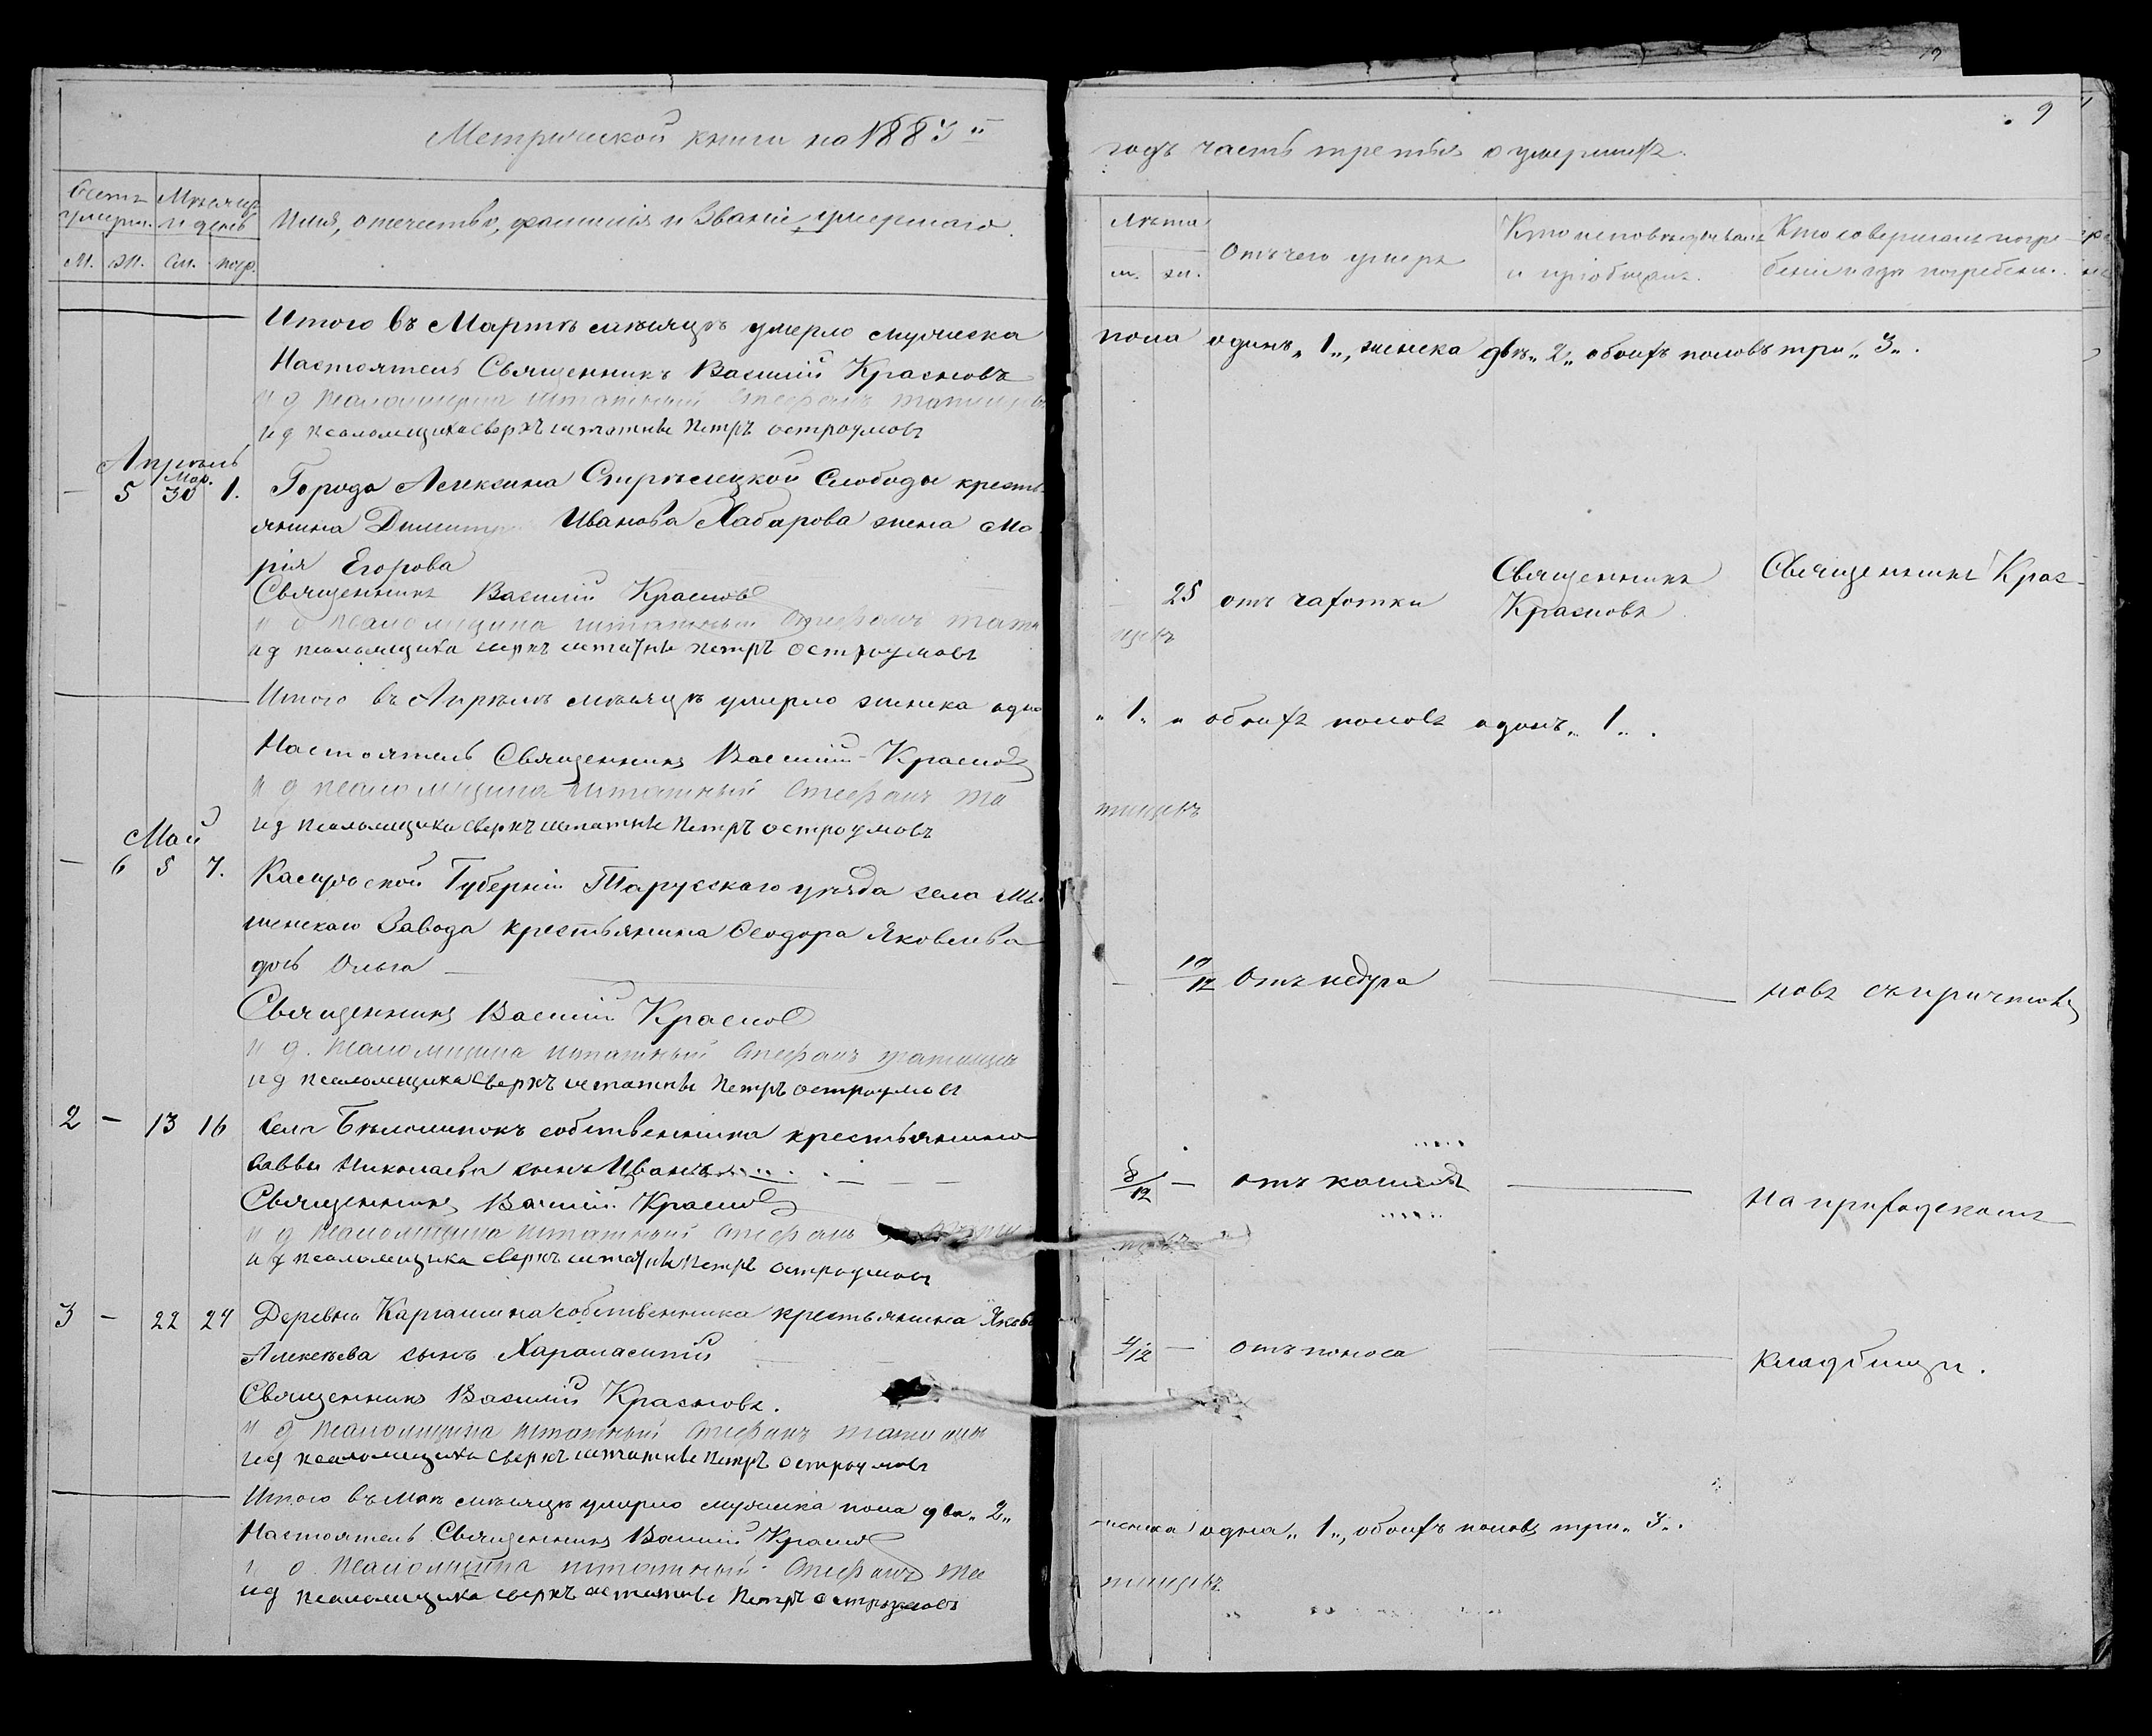 Метрической книги на 1883 й
Счетъ умерш. Мѣсяцъ и день Имя, отечество, фамилія и званіе умершаго.
м. ж. см. погр.
Итого въ Мартѣ мѣсяцѣ умерло мужеска
Настоятель Священникъ Василій Красновъ
и д псаломщика штатный Стефанъ
и д псаломщика сверхъ штатные Петръ Остроумовъ
Апрѣль
Мар.
— 5 30 1. Города Алексина Стрѣлецкой Слободы кресть-
янина Димитр Иванова Хабарова жена Ма-
рія Егорова
Священникъ Василій Красновъ
и д псаломщика штатный Стефанъ
и д псаломщика сверхъ штатные Петръ Остроумовъ
Итого въ Апрѣлѣ мѣсяцѣ умерло женска одна
Настоятель Священникъ Василій Красновъ
и д псаломщика штатный Стефанъ
и д псаломщика сверхъ штатные Петръ Остроумовъ
Май
— 6 5 7. Калужской Губерніи Тарусскаго уѣзда села Мы-
шенскаго Завода крестьянина Ѳеодора Яковлева
дочь Ольга —
Священникъ Василій Красновъ
и д. псаломщика штатный Стефанъ
и д псаломщика сверхъ штатные Петръ Остроумовъ
2 — 13 16 Села Бѣлолипокъ собственника крестьянина
Саввы Николаева сынъ Иванъ
Священникъ Василій Красновъ
и д псаломщика штатный Стефанъ
и д псаломщика сверхъ штатные Петръ Остроумовъ
3 — 22 24 Деревни собственника крестьянина Якова
Алексѣева сынъ
Священникъ Василій Красновъ.
и д псаломщика штатный Стефанъ
и д псаломщика сверхъ штатные Петръ Остроумовъ
Итого въ Маѣ мѣсяцѣ умерло мужеска пола два „2„
Настоятель Священникъ Василій Красновъ
и д. псаломщика штатный Стефанъ
и д псаломщика сверхъ штатные Петръ Остроумовъ
9
годъ часть третья о умершихъ.
Лѣта Отъ чего умеръ Кто исповѣдывалъ Кто совершалъ погре-
м. ж. и пріобщалъ. беніе и гдѣ погребены.
пола одинъ „1„, женска двѣ „2„ обоихъ половъ три „3„.
Священникъ Священникъ Крас-
— 25 отъ чахотки Красновъ
„1„ обоихъ половъ одинъ „1„.
— 10/12 Отъ недуга — новъ съ причтомъ
8/12 — отъ кашля — На приходскомъ
4/12 — отъ поноса — кладбищѣ.
женска одна „1„, обоихъ половъ три „3„.